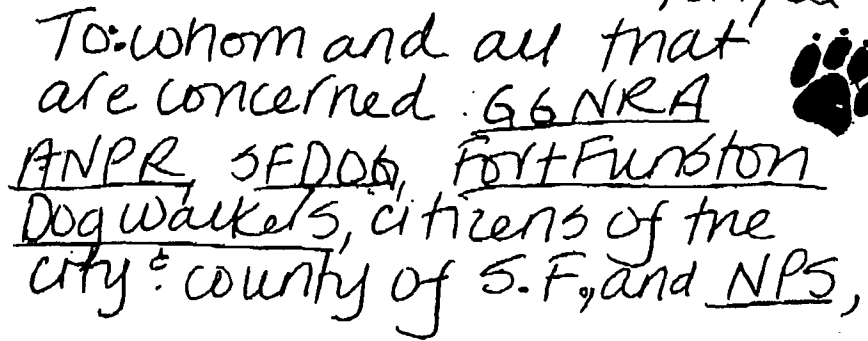 To: whom and all that
are concerned: GGNRA
ANPR, SFDOG, Fort Funston
Dog Walkers, citizens of the
city & county of S.F., and NPS,